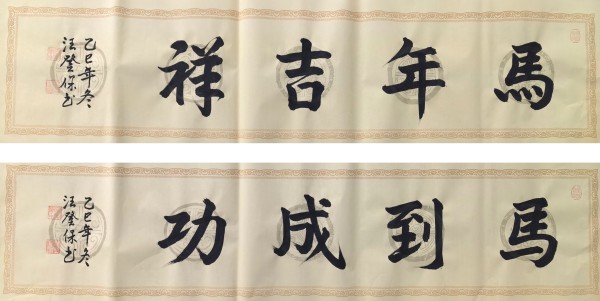 馬年吉祥
乙巳年冬
汪登保书
馬到成功
乙巳年冬
汪登保书